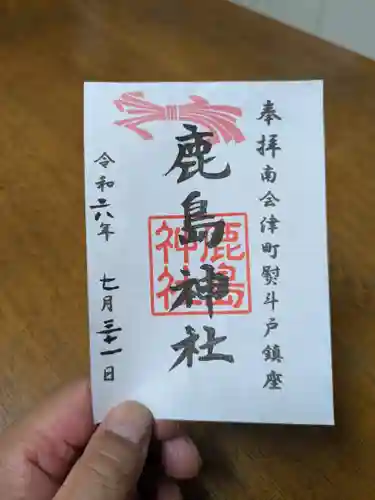 奉拝 南会津町熨斗戸鎮座
鹿島神社
鹿島
神社
令和六年 七月三十一日